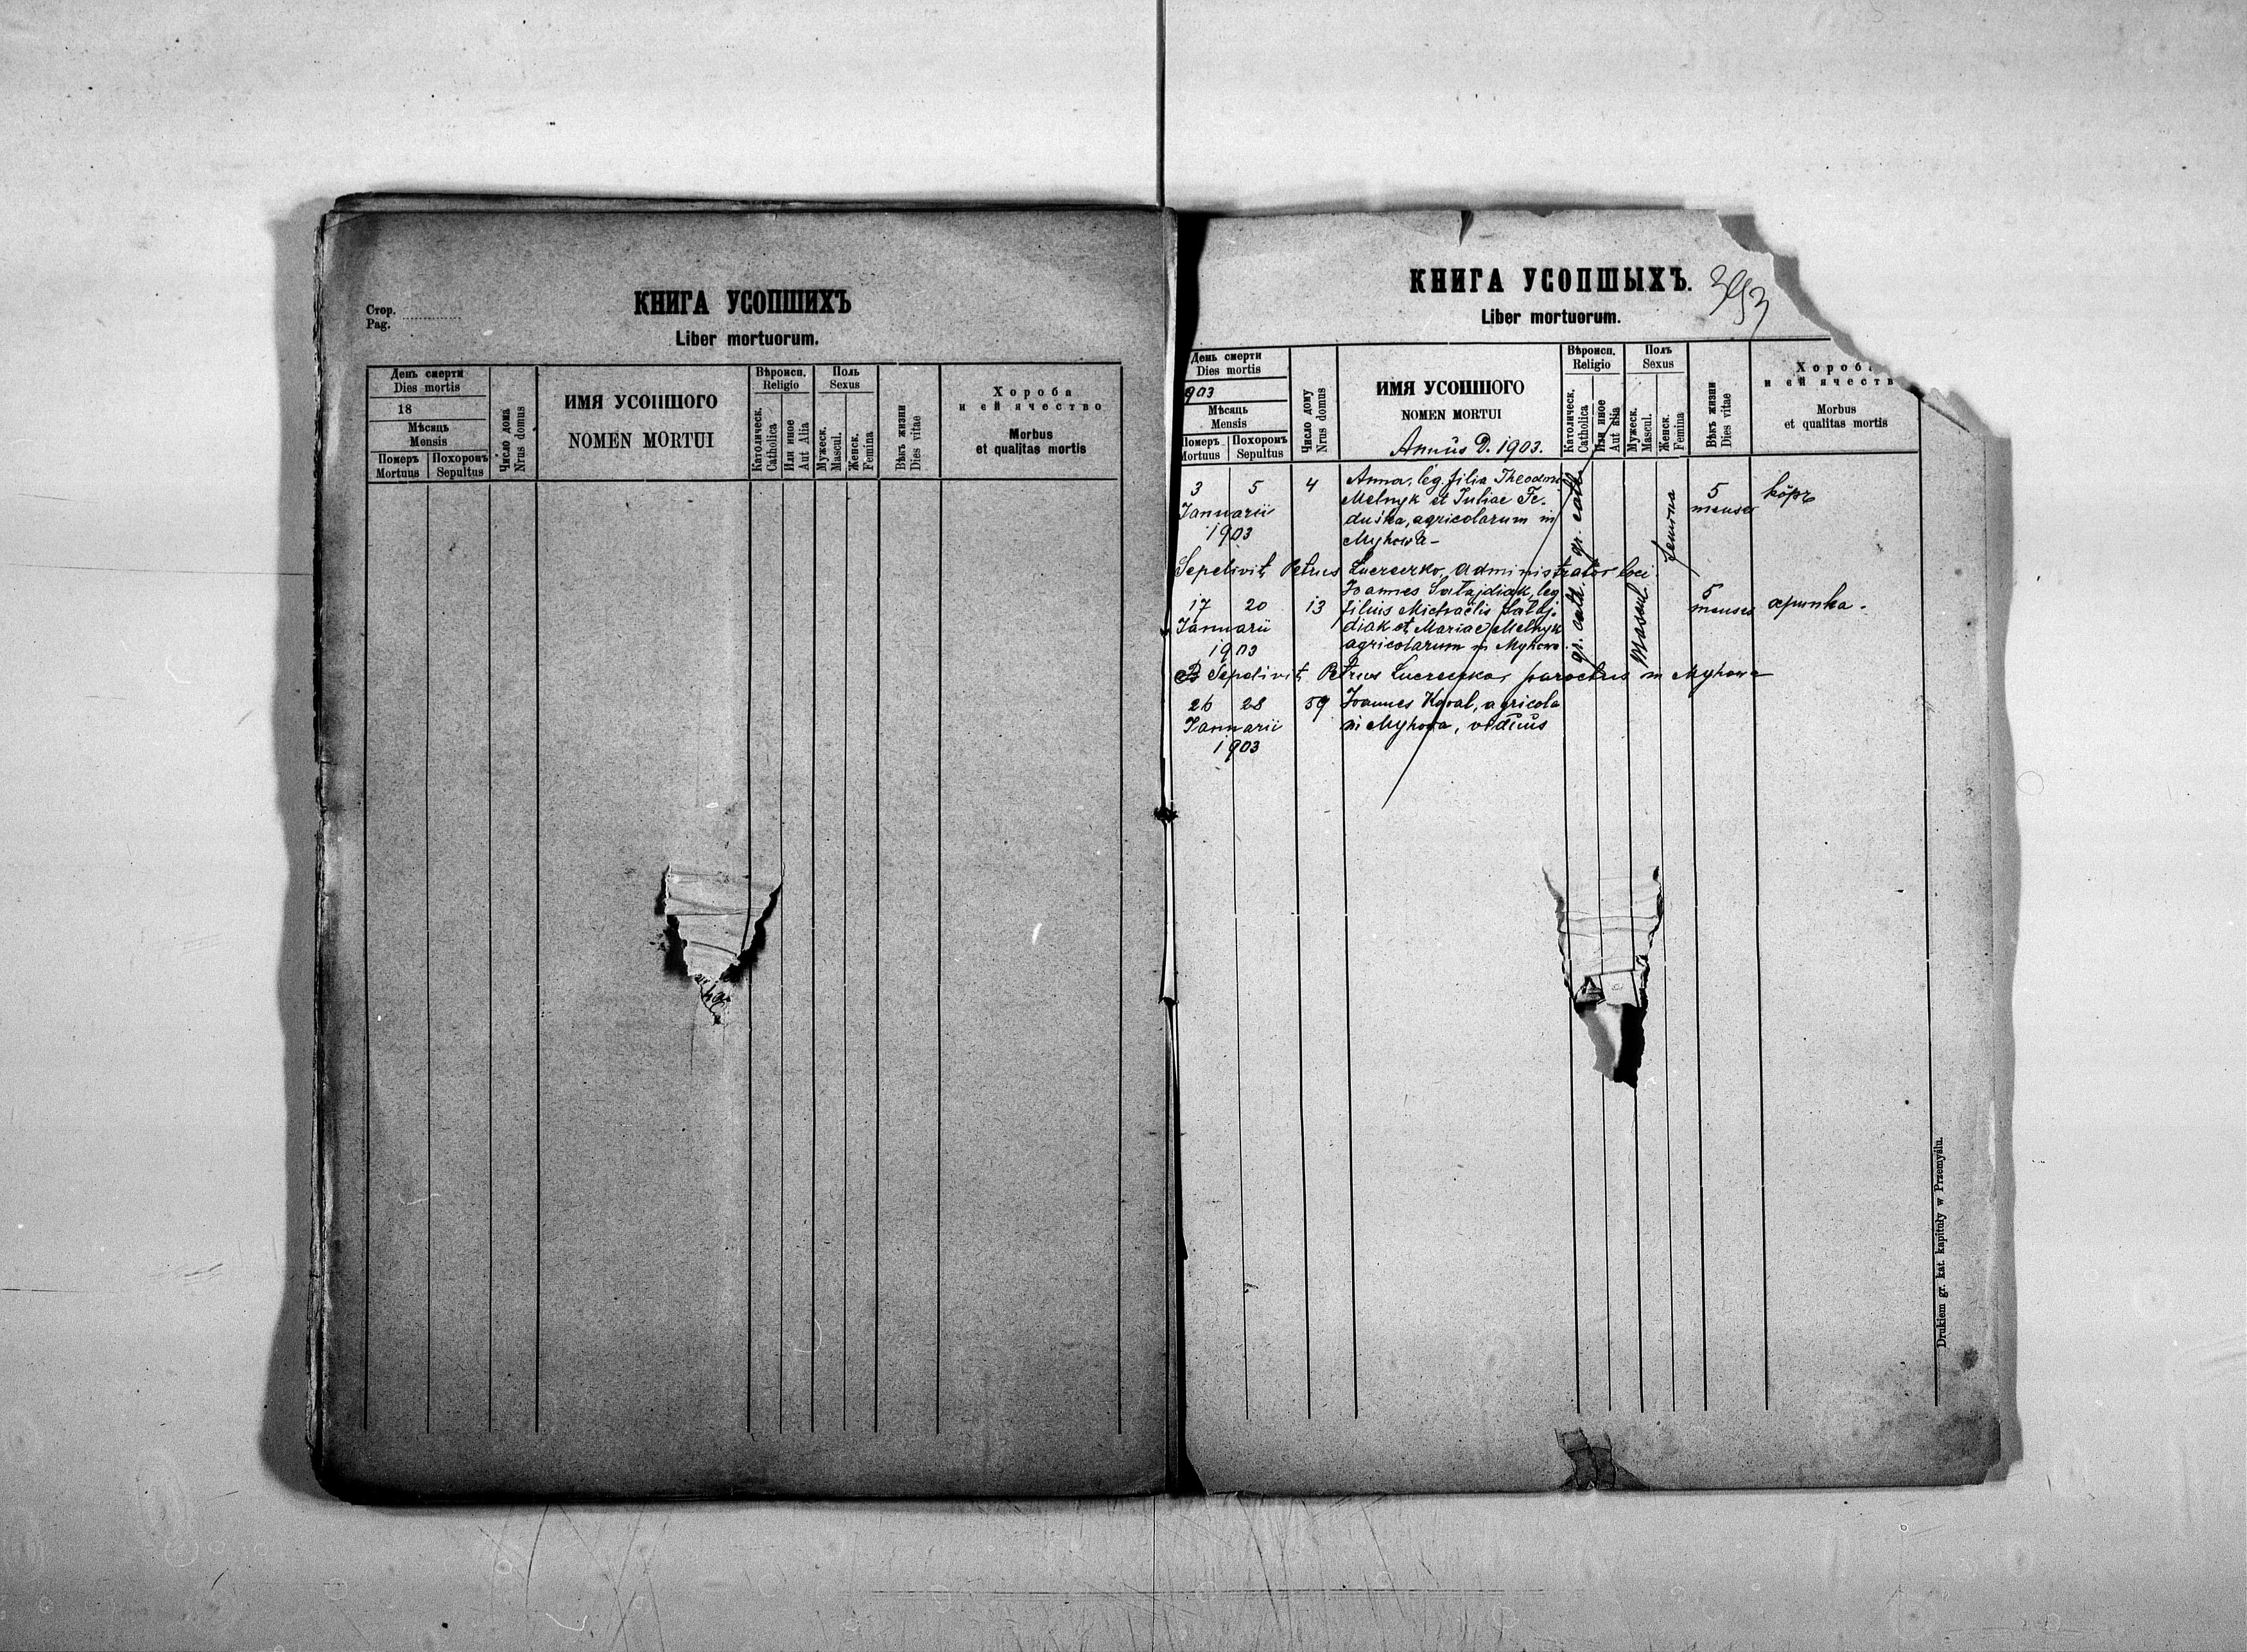 КНИГА УСОПШИХЪ
Стор.
Pag.
Liber mortuorum.
День смерти
Dies mortis
18
Мѣсяць
Mensis
Померъ
Mortuus
Похоронъ
Sepultus
Число дома
Nrus domus
ИМЯ УСОПШОГО
NOMEN MORTUI
Вѣроисп.
Religio
Католическ.
Catholica
Или иное
Aut Alia
Поль
Sexus
Мужеск.
Mascul.
Женск.
Femina
Вѣкъ жизни
Dies vitae
Хороба
и ей ячество
Morbus
et qualitas mortis
КНИГА УСОПШЫХЪ.
Liber mortuorum.
День смерти
Dies mortis
903
Мѣсяць
Mensis
Померъ
Mortuus
Похоронъ
Sepultus
Число дому
Nrus domus
ИМЯ УСОПШОГО
NOMEN MORTUI
Annus D. 1903.
Вѣроисп.
Religio
Католическ.
Catholica
Или иное
Aut alia
Полъ
Sexus
Мужеск.
Mascul.
Женск.
Femina
Вѣкъ жизни
Dies vitae
Хороба
и ей ячеств
Morbus
et qualitas mortis
3 5 4 Anna, leg. filia Theodori
Melnyk et Juliae Fe-
duśka, agricolarum in
Myhowa -
Januarii
1903
gr. cath
femina
5
menses
Sepelivit Petrus administrator loci
17 20 13 Joannes leg
filius Michaelis
diak et Mariae Melnyk
agricolarum in Myhowa
Januarii
1903
gr. cath
Mascul
5
menses
Sepelivit Petrus parochus in Myhowa
26 28 59 Joannes Kowal, agricola
in Myhowa, viduus
Januarii
1903
Drukiem gr. kat. kapituły w Przemyślu.